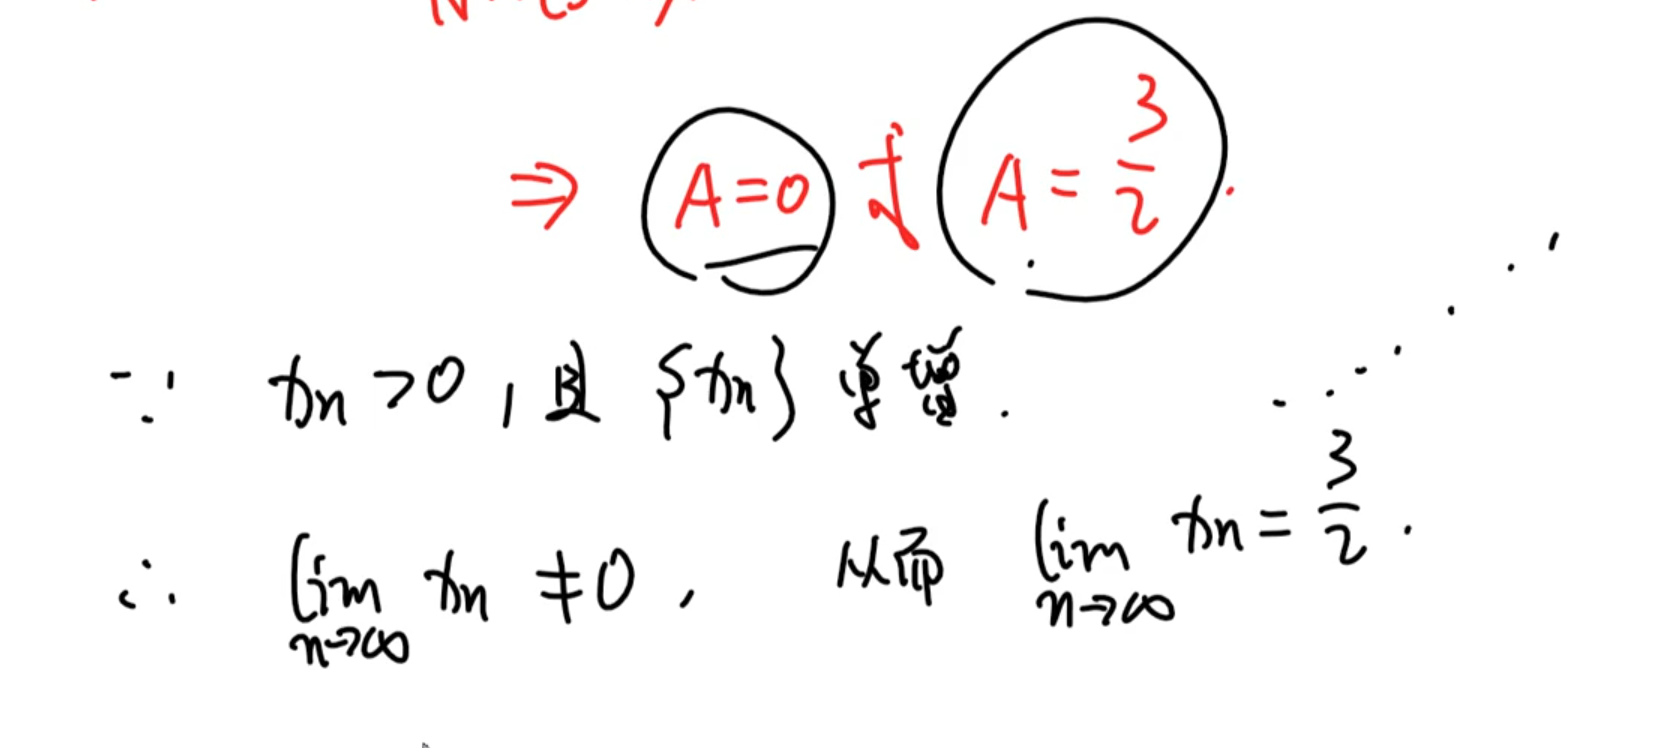 ⇒ A=0 或 A=3/2.
∵ xn>0, 且 {xn} 单增.
∴ lim n→∞ xn ≠0, 从而 lim n→∞ xn = 3/2.